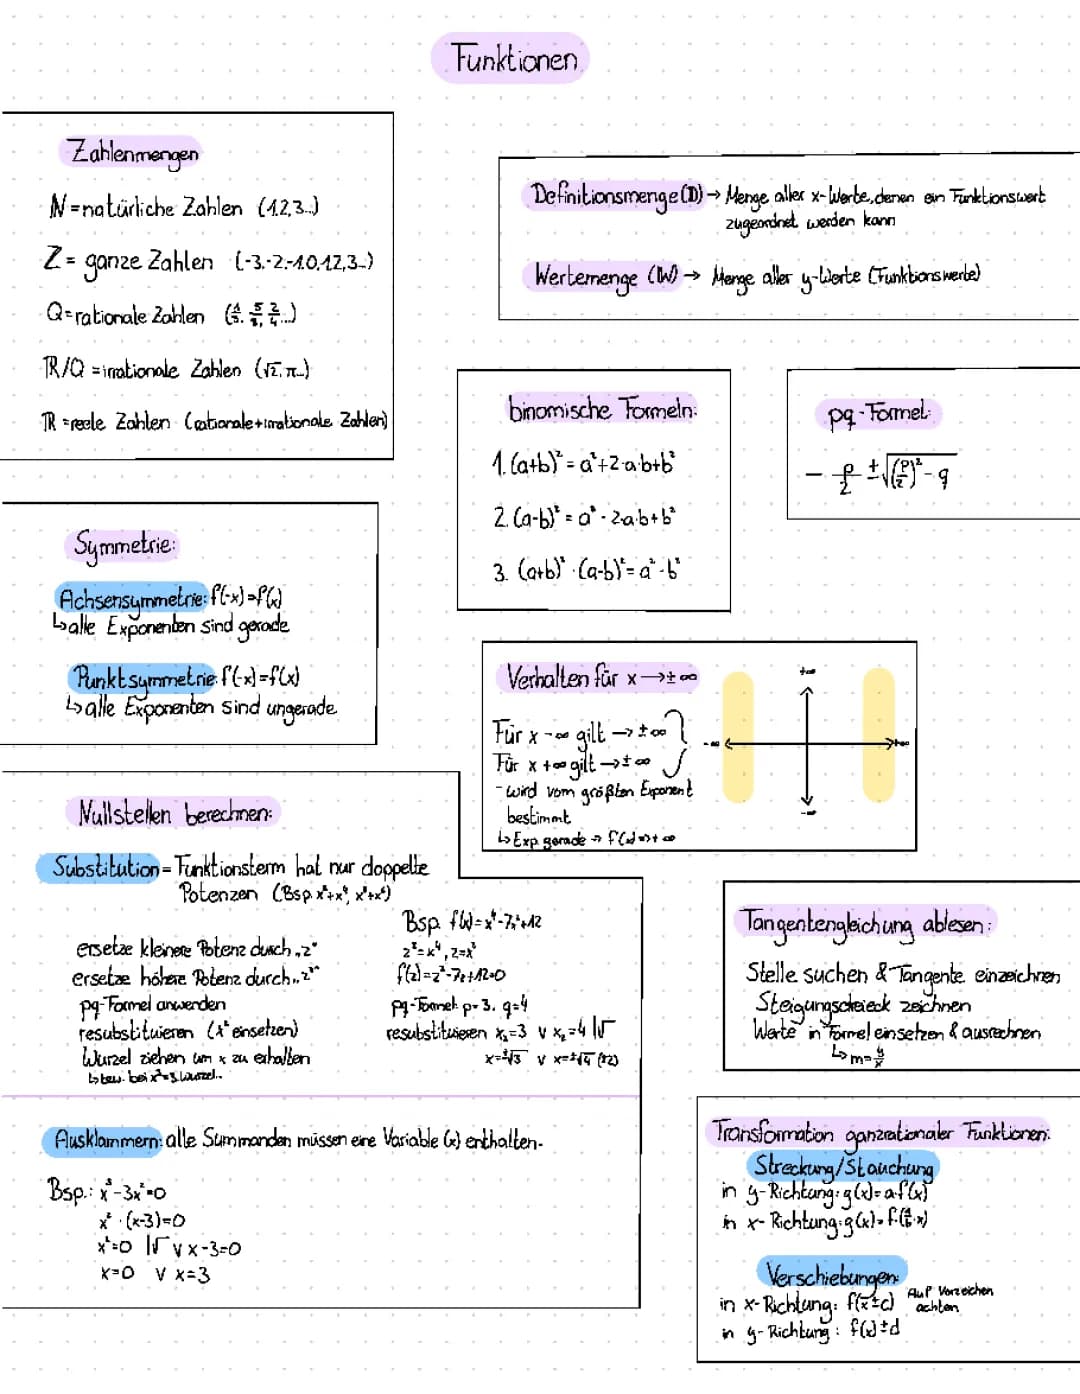 Funktionen
Zahlenmengen
N = natürliche Zahlen (1,2,3...)
Z = ganze Zahlen (-3,-2,-1,0,1,2,3...)
Q = rationale Zahlen
ℝ/Q = irrationale Zahlen (√2, π...)
ℝ = reele Zahlen (rationale + irrationale Zahlen)
Definitionsmenge (D) → Menge aller x-Werte, denen ein Funktionswert
zugeordnet werden kann
Wertemenge (W) → Menge aller y-Werte (Funktionswerte)
binomische Formeln:
1. (a+b)² = a²+2·a·b+b²
2. (a-b)² = a² - 2·a·b+b²
3. (a+b)² · (a-b)² = a² - b²
pq-Formel:
- p/2 ± √((p/2)² - q)
Symmetrie:
Achsensymmetrie: f(-x)=f(x)
↳ alle Exponenten sind gerade
Punktsymmetrie: f(-x)=f(x)
↳ alle Exponenten sind ungerade
Verhalten für x → ± ∞
Für x -∞ gilt → ± ∞
Für x +∞ gilt → ± ∞
- wird vom größten Exponent
bestimmt
↳ Exp. gerade → f(x) => + ∞
+∞
-∞ +∞
-∞
Nullstellen berechnen:
Substitution = Funktionsterm hat nur doppelte
Potenzen (Bsp. x²+x⁴,
ersetze kleinere Potenz durch „z"
ersetze höhere Potenz durch „z²"
pq-Formel anwenden
resubstituieren (x² einsetzen)
Wurzel ziehen um x zu erhalten
↳ bzw. bei x³ = 3. Wurzel..
Bsp. f(x)=x⁴-7x²+12
z²=x⁴, z=x²
f(z)=z²-7z+12=0
pq-Formel: p=3, q=4
resubstituieren x₁=3 ∨ x₂=4 |√
x=±√3 ∨ x=±√4 (±2)
Ausklammern: alle Summanden müssen eine Variable (x) enthalten.
Bsp.: x³-3x²=0
x² · (x-3)=0
x²=0 |√ ∨ x-3=0
x=0 ∨ x=3
Tangentengleichung ablesen:
Stelle suchen & Tangente einzeichnen
Steigungsdreieck zeichnen
Werte in Formel einsetzen & ausrechnen
↳ m=y/x
Transformation ganzrationaler Funktionen:
Streckung/Stauchung
in y-Richtung: g(x)=a·f(x)
in x-Richtung: g(x)=f(1/b·x)
Verschiebungen:
in x-Richtung: f(x±c) Auf Vorzeichen
achten
in y-Richtung: f(x)±d